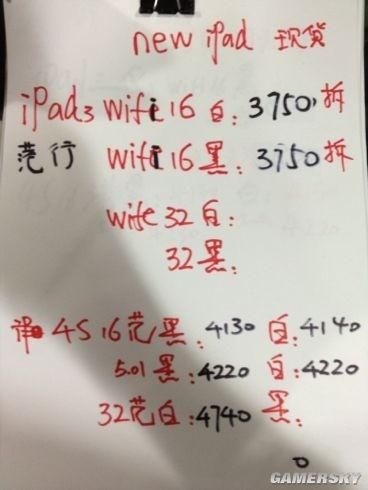 new ipad 现货
iPad3 wifi 16 白: 3750 拆
范行 wifi 16 黑: 3750 拆
wife 32 白:
32 黑:
4S 16 范黑: 4130 白: 4140
5.01 黑: 4220 白: 4220
32 范白: 4740 黑:
GAMERSKY